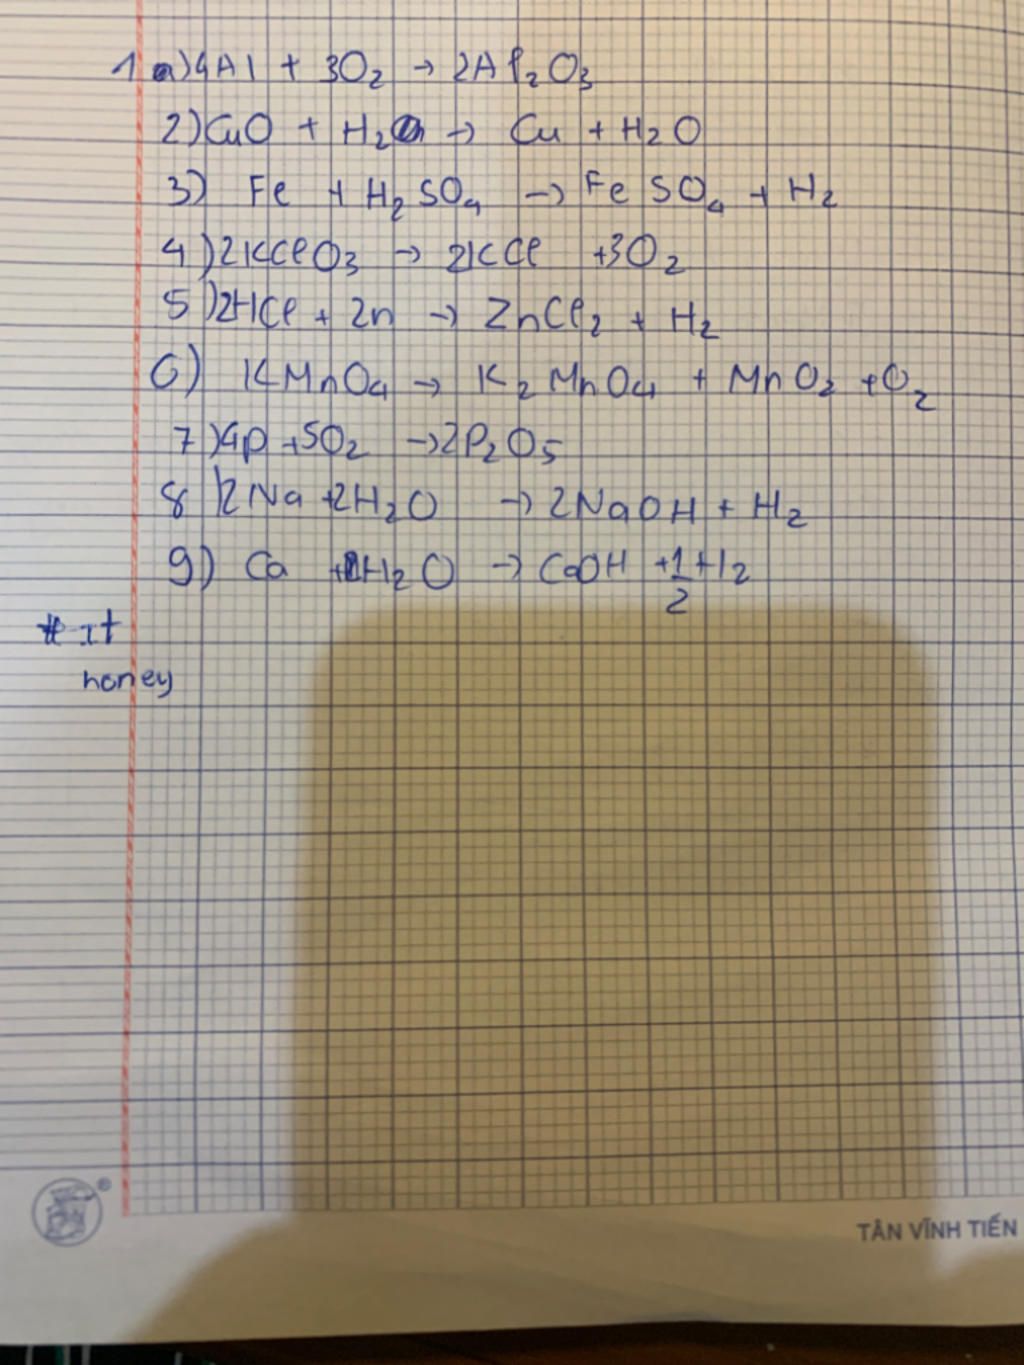 1 a) 4Al + 3O2 → 2Al2O3
2) CuO + H2 → Cu + H2O
3) Fe + H2SO4 → FeSO4 + H2
4) 2KClO3 → 2KCl + 3O2
5) 2HCl + Zn → ZnCl2 + H2
6) KMnO4 → K2MnO4 + MnO2 + O2
7) 4P + 5O2 → 2P2O5
8) 2Na + 2H2O → 2NaOH + H2
9) Ca + H2O → CaOH + 1/2 H2
honey
TÂN VĨNH TIẾN